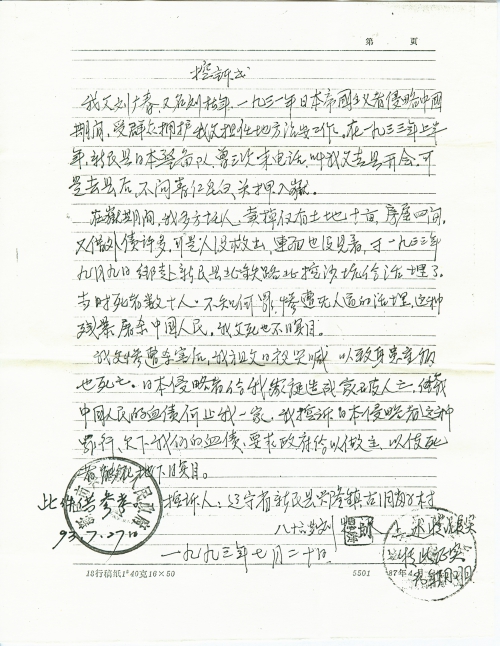 第 頁
控訴书
我父刘春,又名刘,一九三一年日本帝國主义者侵略中國
期间,受群众拥护我父担任地方法官工作。在一九三三年上半
年,新民县日本警备队曾三次来电话,叫我父去县开会,可
是去县后,不问青红皂白,关押入獄。
在獄期间,我多方托人,卖掉仅有土地十亩,房屋四间,
又借外债许多,可是人没救出,连面也没見着,于一九三三年
九月九日绑赴新民县北铁路北挖沙坑给活埋了。
当时死者数十人。不知何罪,惨遭无人道的活埋,这种
残暴屠杀中國人民,我父死也不瞑目。
我父惨遭杀害后,我祖父日夜哭喊,以致身患重病
也死亡。日本侵略者给我家造成家破人亡,使我
中國人民的血债何止我一家,我控訴日本侵略者这种
罪行,欠下我们的血债,要求政府给以做主,以使死
者能在地下瞑目。
控訴人:辽宁省新民县兴隆镇古
八十六岁刘
一九九三年七月二十日
此件供参考
93.7.27日
上述情况属实
特此证实
18行稿紙1°40克16×50
5501